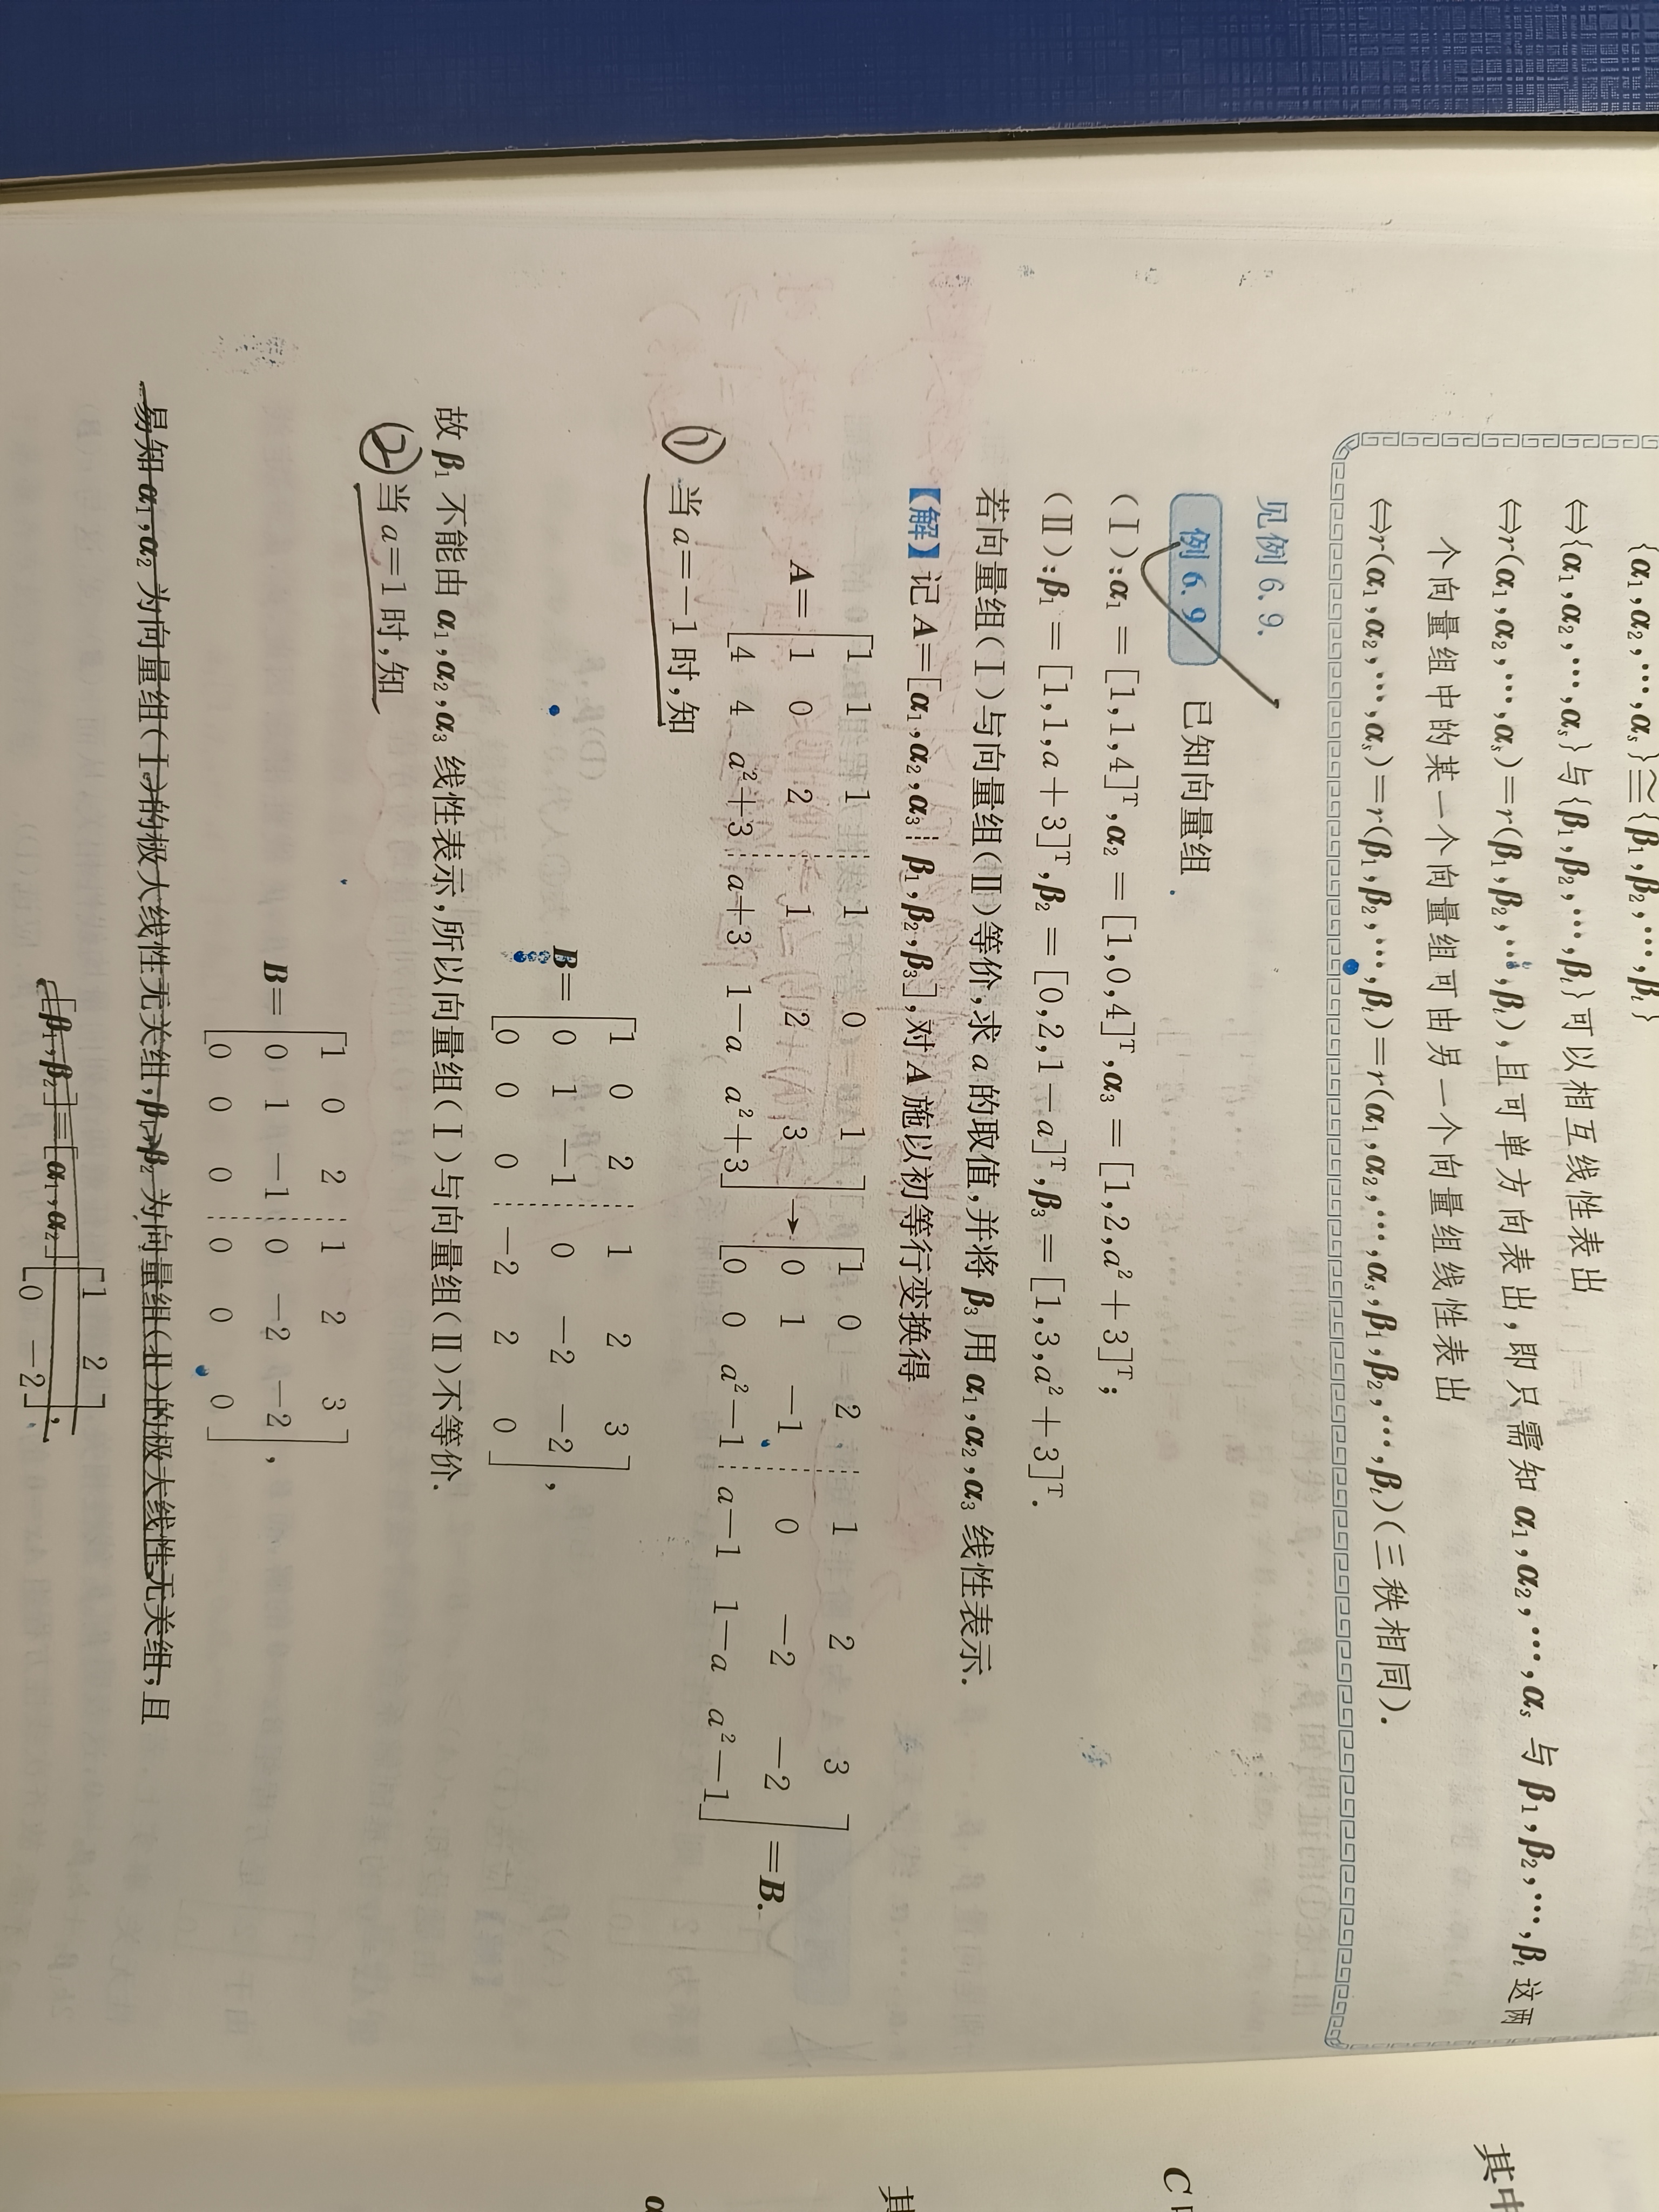 {α₁,α₂,…,αₛ}≅{β₁,β₂,…,βₜ}
⇔{α₁,α₂,…,αₛ}与{β₁,β₂,…,βₜ}可以相互线性表出
⇔r(α₁,α₂,…,αₛ)=r(β₁,β₂,…,βₜ),且可单方向表出,即只需知α₁,α₂,…,αₛ与β₁,β₂,…,βₜ这两
个向量组中的某一个向量组可由另一个向量组线性表出
⇔r(α₁,α₂,…,αₛ)=r(β₁,β₂,…,βₜ)=r(α₁,α₂,…,αₛ,β₁,β₂,…,βₜ)(三秩相同).
见例 6.9.
例 6.9 已知向量组
(Ⅰ):α₁=[1,1,4]ᵀ,α₂=[1,0,4]ᵀ,α₃=[1,2,a²+3]ᵀ;
(Ⅱ):β₁=[1,1,a+3]ᵀ,β₂=[0,2,1-a]ᵀ,β₃=[1,3,a²+3]ᵀ.
若向量组(Ⅰ)与向量组(Ⅱ)等价,求a的取值,并将β₃用α₁,α₂,α₃线性表示.
【解】记A=[α₁,α₂,α₃⋮β₁,β₂,β₃],对A施以初等行变换得
1 1 1 ⋮ 1 0 1 1 0 2 ⋮ 1 2 3
A= 1 0 2 ⋮ 1 2 3 → 0 1 -1 ⋮ 0 -2 -2 =B.
4 4 a²+3 ⋮ a+3 1-a a²+3 0 0 a²-1 ⋮ a-1 1-a a²-1
① 当a=-1时,知
1 0 2 ⋮ 1 2 3
B= 0 1 -1 ⋮ 0 -2 -2 ,
0 0 0 ⋮ -2 2 0
故β₁不能由α₁,α₂,α₃线性表示,所以向量组(Ⅰ)与向量组(Ⅱ)不等价.
② 当a=1时,知
1 0 2 ⋮ 1 2 3
B= 0 1 -1 ⋮ 0 -2 -2 ,
0 0 0 ⋮ 0 0 0
易知α₁,α₂为向量组(Ⅰ)的极大线性无关组,β₁,β₂为向量组(Ⅱ)的极大线性无关组,且
1 2
[β₁,β₂]=[α₁,α₂]
0 -2 ,
其中
C
其
α